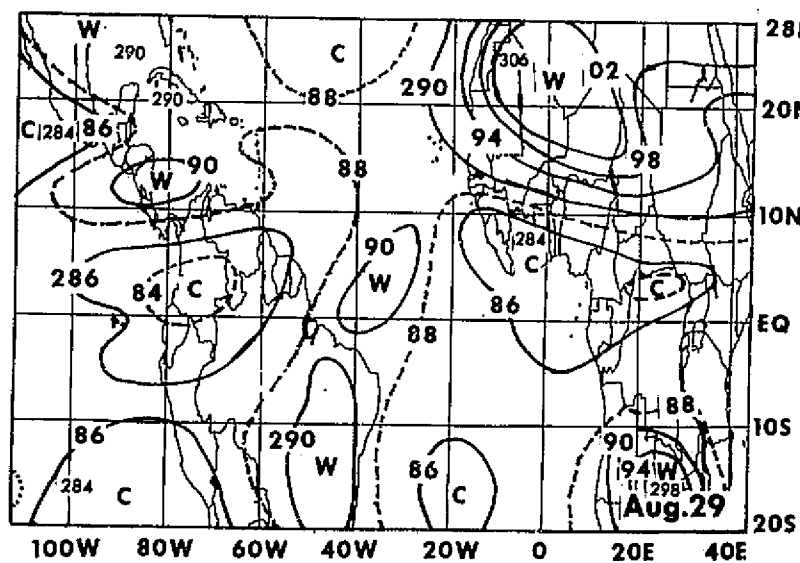 W
290
C
306
W
02
28
290
290
88
20
C
284
86
94
98
90
88
W
10N
90
284
286
84
C
W
C
C
86
88
EQ
88
86
290
86
90
10S
284
C
W
C
94
W
298
Aug.29
20S
100W
80W
60W
40W
20W
0
20E
40E